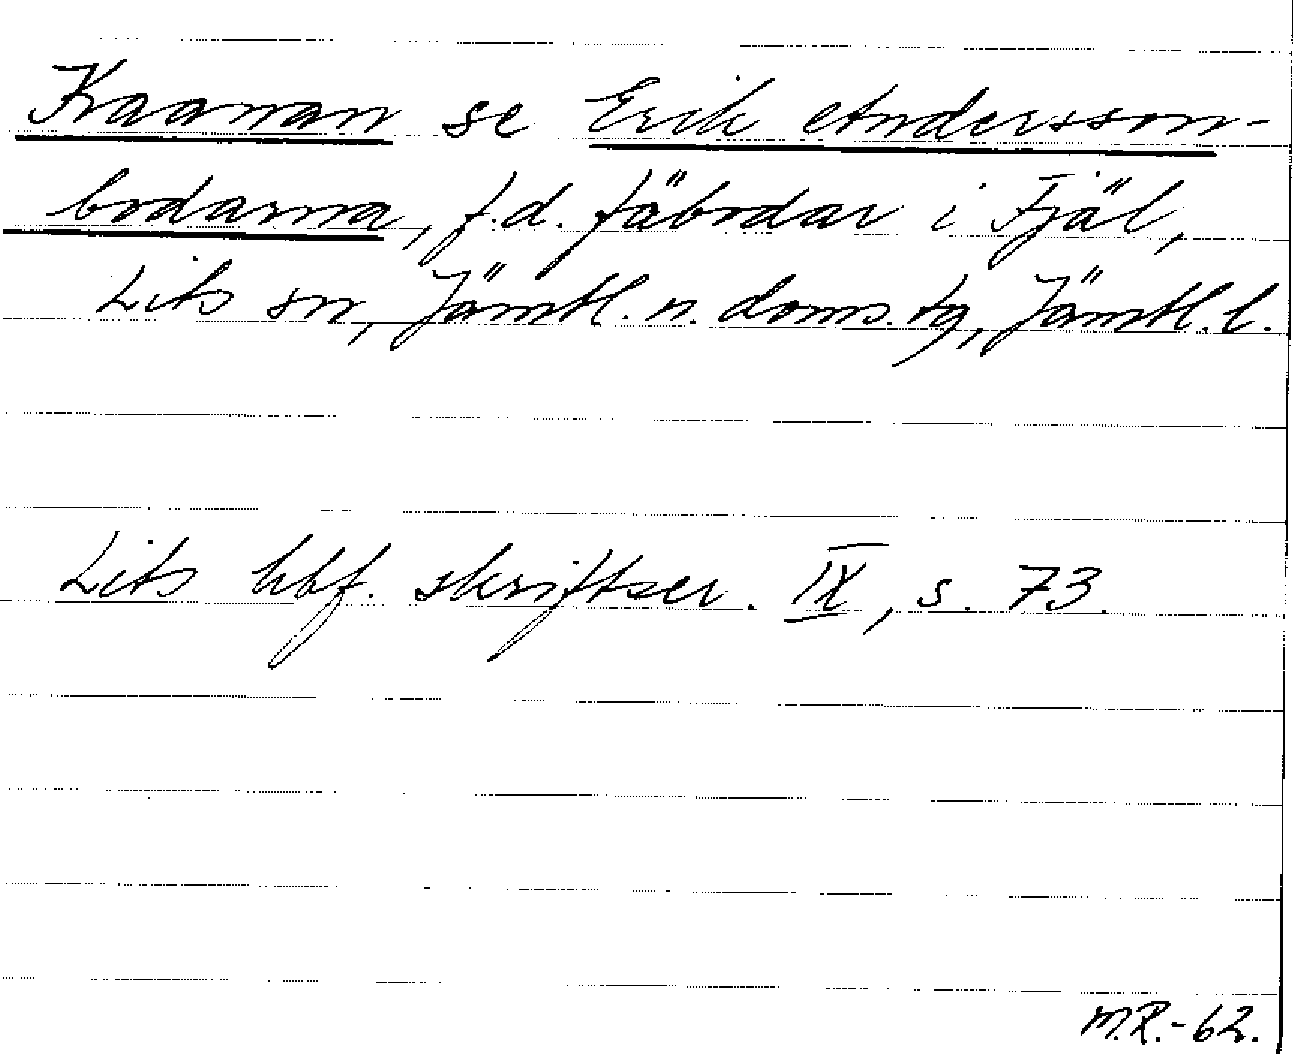 Kaanan se Erik Andersson-
bodarna, f.d. fäbodar i Fjäl,
Lits sn, Jämtl. n. doms. tg, Jämtl. l.
Lits hbf. skriftser. IX, s. 73.
M.R.-62.